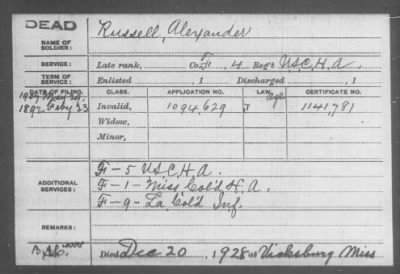 DEAD
NAME OF SOLDIER: Russell, Alexander
SERVICE: Late rank, Co. F, 4 Reg't U.S.C.H.A.
TERM OF SERVICE: Enlisted , 1 Discharged , 1
DATE OF FILING. CLASS. APPLICATION NO. LAW. CERTIFICATE NO.
1892 Feby 23 Invalid, 1094,629 age 1141,781
Widow,
Minor,
ADDITIONAL SERVICES:
F-5 U.S.C.H.A.
F-1-Miss. Col'd H.A.
F-9-La. Col'd Inf.
REMARKS:
Died Dec 20, 1928 at Vicksburg Miss